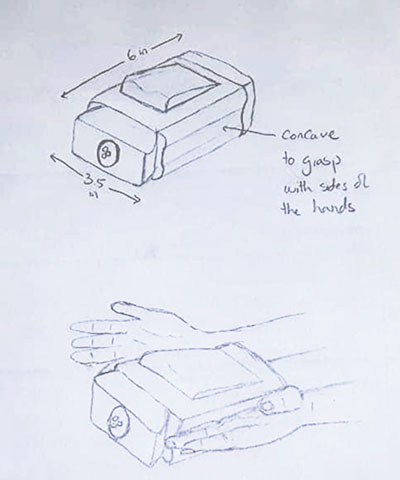 6 in
concave
to grasp
with sides of
the hands
3.5
in